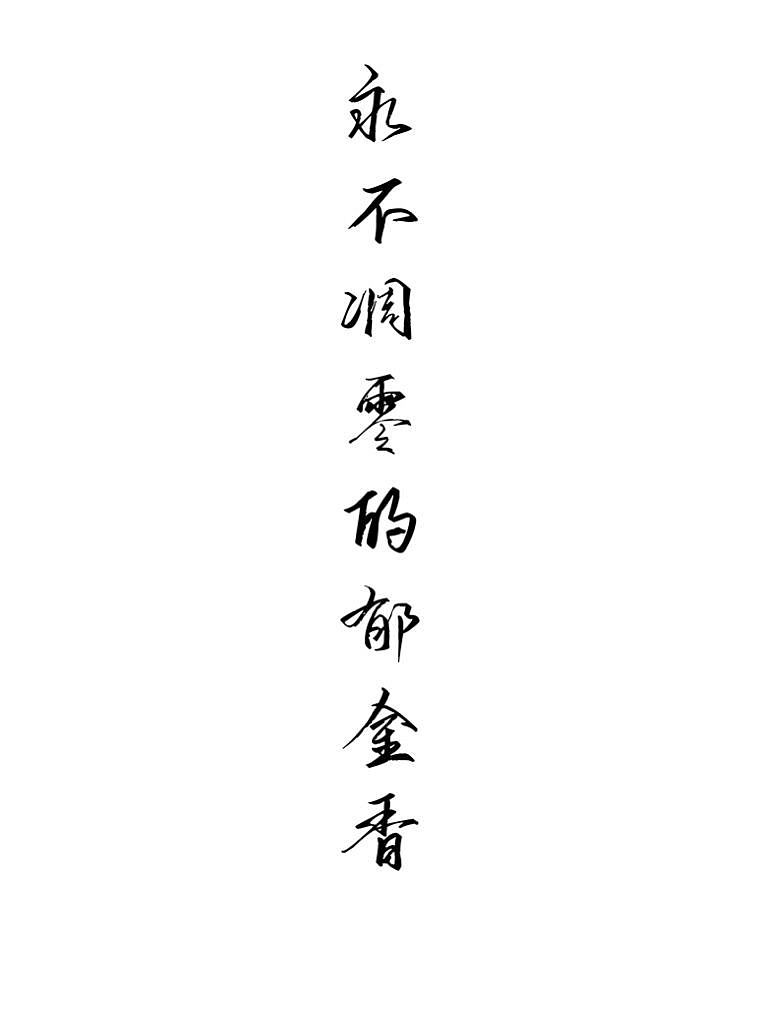 永不凋零的郁金香